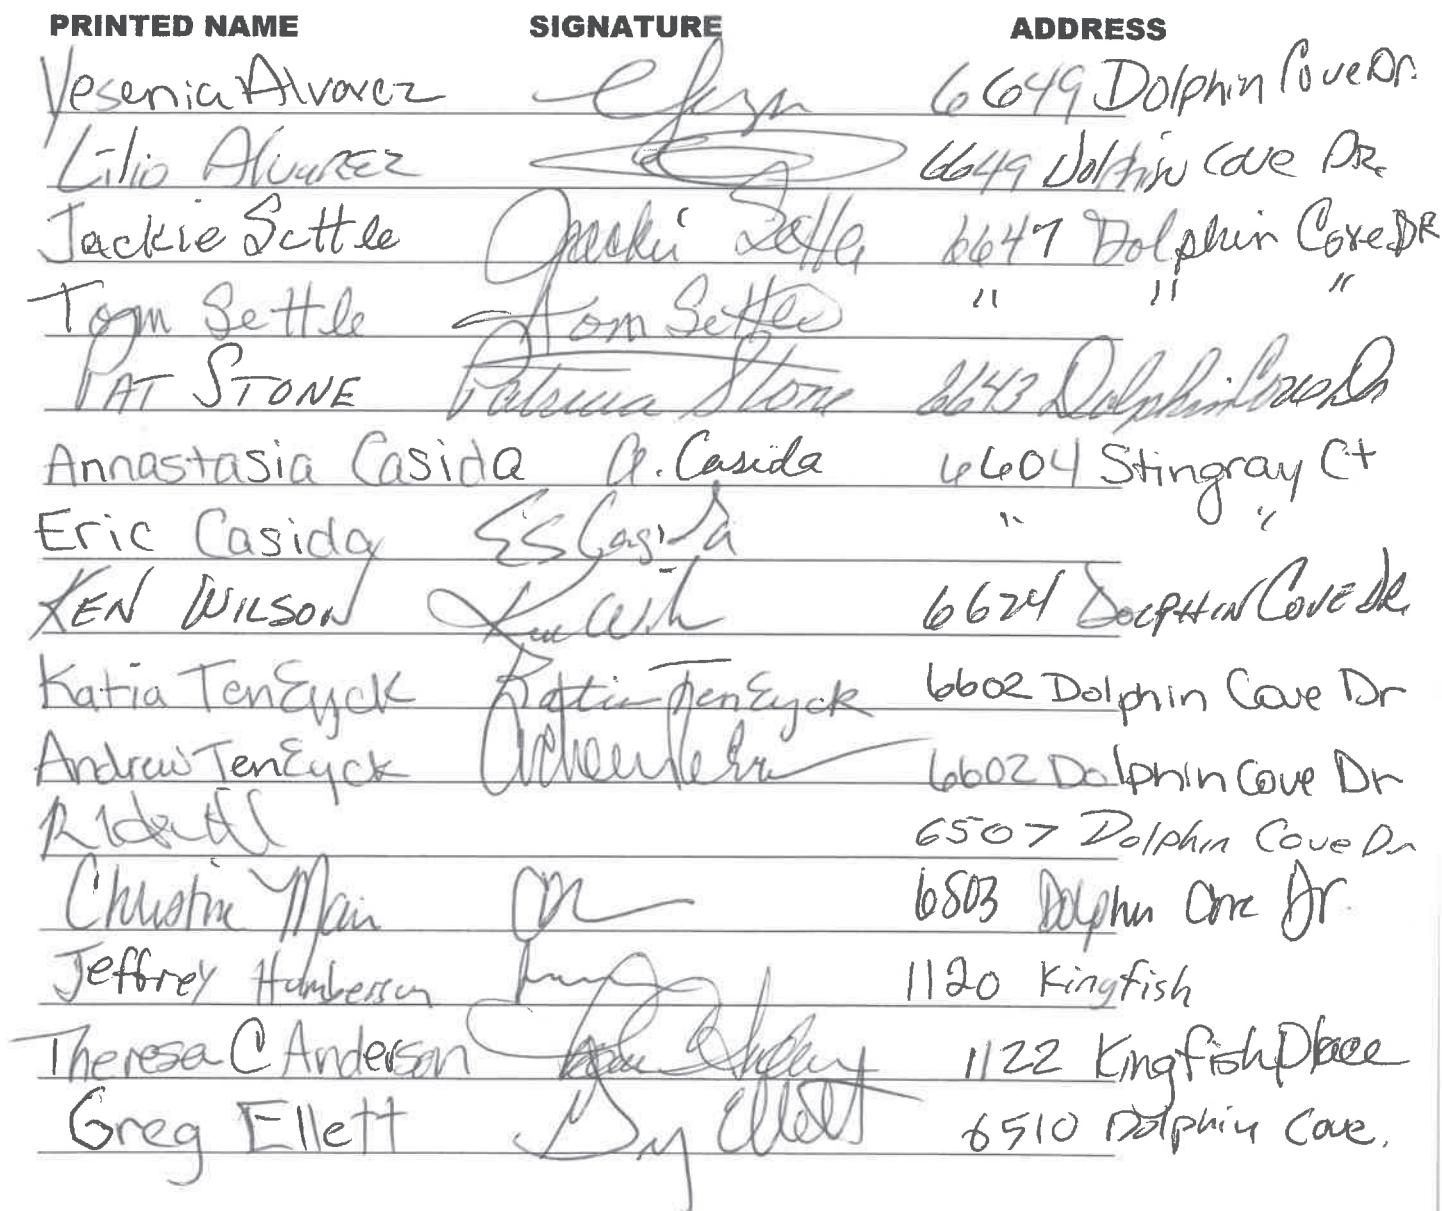 PRINTED NAME SIGNATURE ADDRESS
Yesenia Alvarez 6649 Dolphin Cove Dr.
Lilio Alvarez 6649 Dolphin Cove DR.
Jackie Settle Jackie Settle 6647 Dolphin Cove DR
Tom Settle Tom Settle " " "
PAT STONE Patricia Stone 6643 Dolphin Cove Dr
Annastasia Casida A. Casida 6604 Stingray Ct
Eric Casida ES Casida " "
KEN WILSON Ken Wil 6624 DOLPHIN COVE DR.
Katia TenEyck Katia TenEyck 6602 Dolphin Cove Dr
Andrew TenEyck 6602 Dolphin Cove Dr
6507 Dolphin Cove Dr
Christine Main 6503 Dolphin Cove Dr.
Jeffrey Humberson 1120 Kingfish
Theresa C Anderson 1122 Kingfish Place
Greg Ellett Greg Ellett 6510 Dolphin Cove.